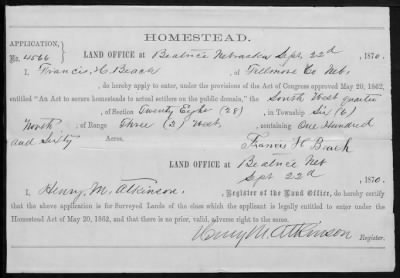 HOMESTEAD.
APPLICATION,
No 4566
LAND OFFICE at Beatrice Nebraska Sept 22d 1870.
I, Francis H. Beach, of Fillmore Co Neb,
do hereby apply to enter, under the provisions of the Act of Congress approved May 20, 1862,
entitled "An Act to secure homesteads to actual settlers on the public domain," the South West quarter
of Section Twenty Eight (28) in Township Six (6)
North, of Range Three (3) West, containing One Hundred
and Sixty Acres.
Francis H Beach
LAND OFFICE at
Beatrice Neb
Sept 22d 1870.
I, Henry M. Atkinson, Register of the Land Office, do hereby certify
that the above application is for Surveyed Lands of the class which the applicant is legally entitled to enter under the
Homestead Act of May 20, 1862, and that there is no prior, valid, adverse right to the same.
Henry M. Atkinson
Register.